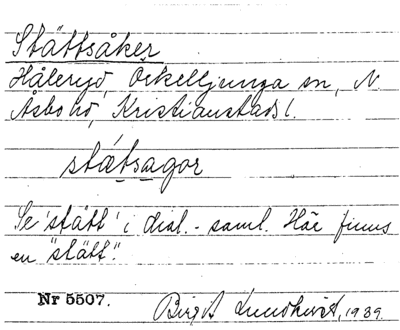 Stättsåker
Håleryd, Örkelljunga sn, N.
Åsbo hd, Kristianstads l.
stætsagor
Se 'stätt' i dial.-saml. Här finns
en "stätt".
Nr 5507.
Birgit Lundkvist, 1939.